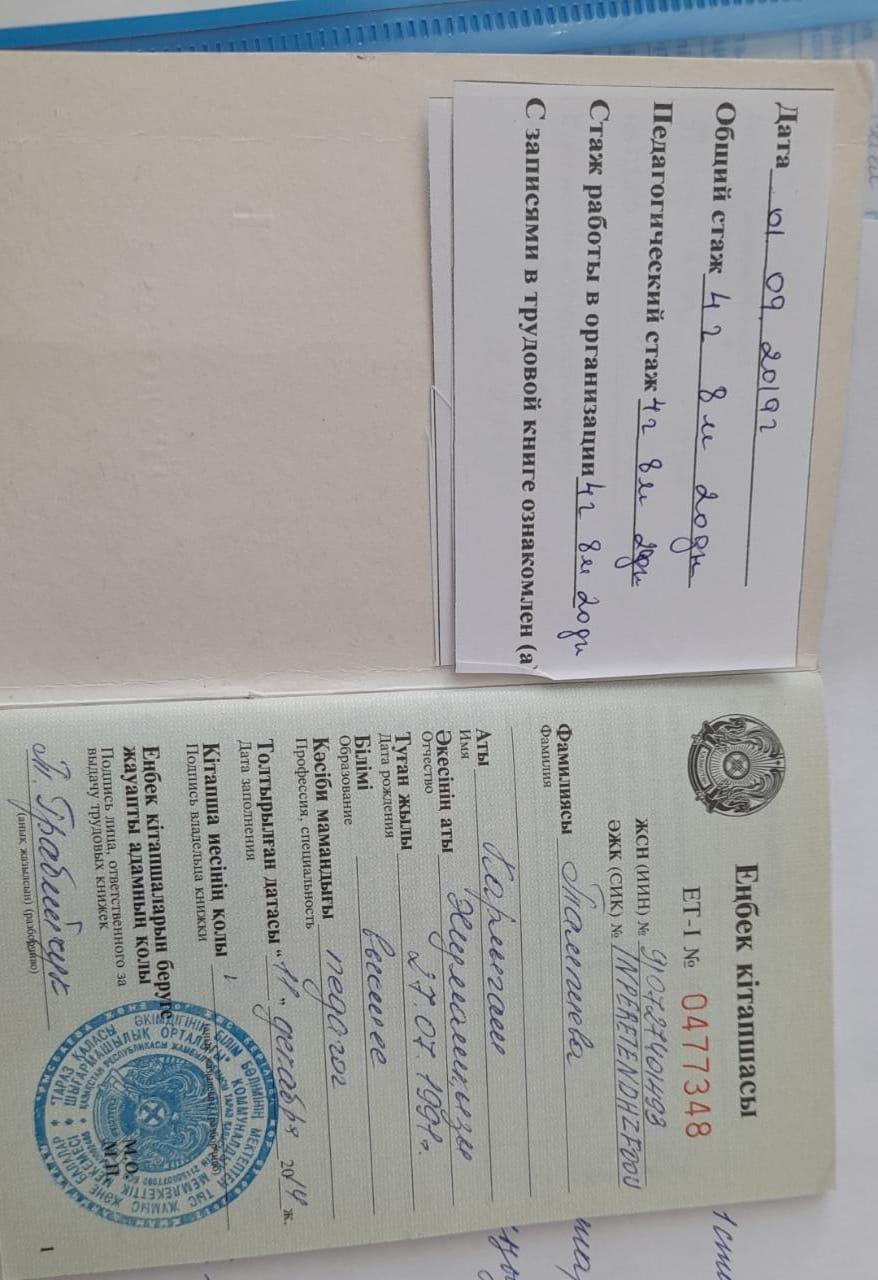 Дата 01 09. 2019г
Общий стаж 4 г 8 м 20дн
Педагогический стаж 4г 8м 20дн
Стаж работы в организации 4г 8м 20дн
С записями в трудовой книге ознакомлен (а
Еңбек кітапшасы
ЕТ-I № 0477348
ЖСН (ИИН) № 910727401493
ӘЖК (СИК) №
Фамилиясы
Фамилия
Аты Карлыгаш
Имя
Әкесінің аты
Отчество
Туған жылы 27.07.1991г.
Дата рождения
Білімі высшее
Образование
Кәсіби мамандығы педагог
Профессия, специальность
Толтырылған датасы "11" декабря 2014 ж.
Дата заполнения
Кітапша иесінің қолы
Подпись владельца книжки
Еңбек кітапшаларын беруге
жауапты адамның қолы
Подпись лица, ответственного за
выдачу трудовых книжек
(анық жазылсын) (разборчиво)
М.О.
М.П.
1